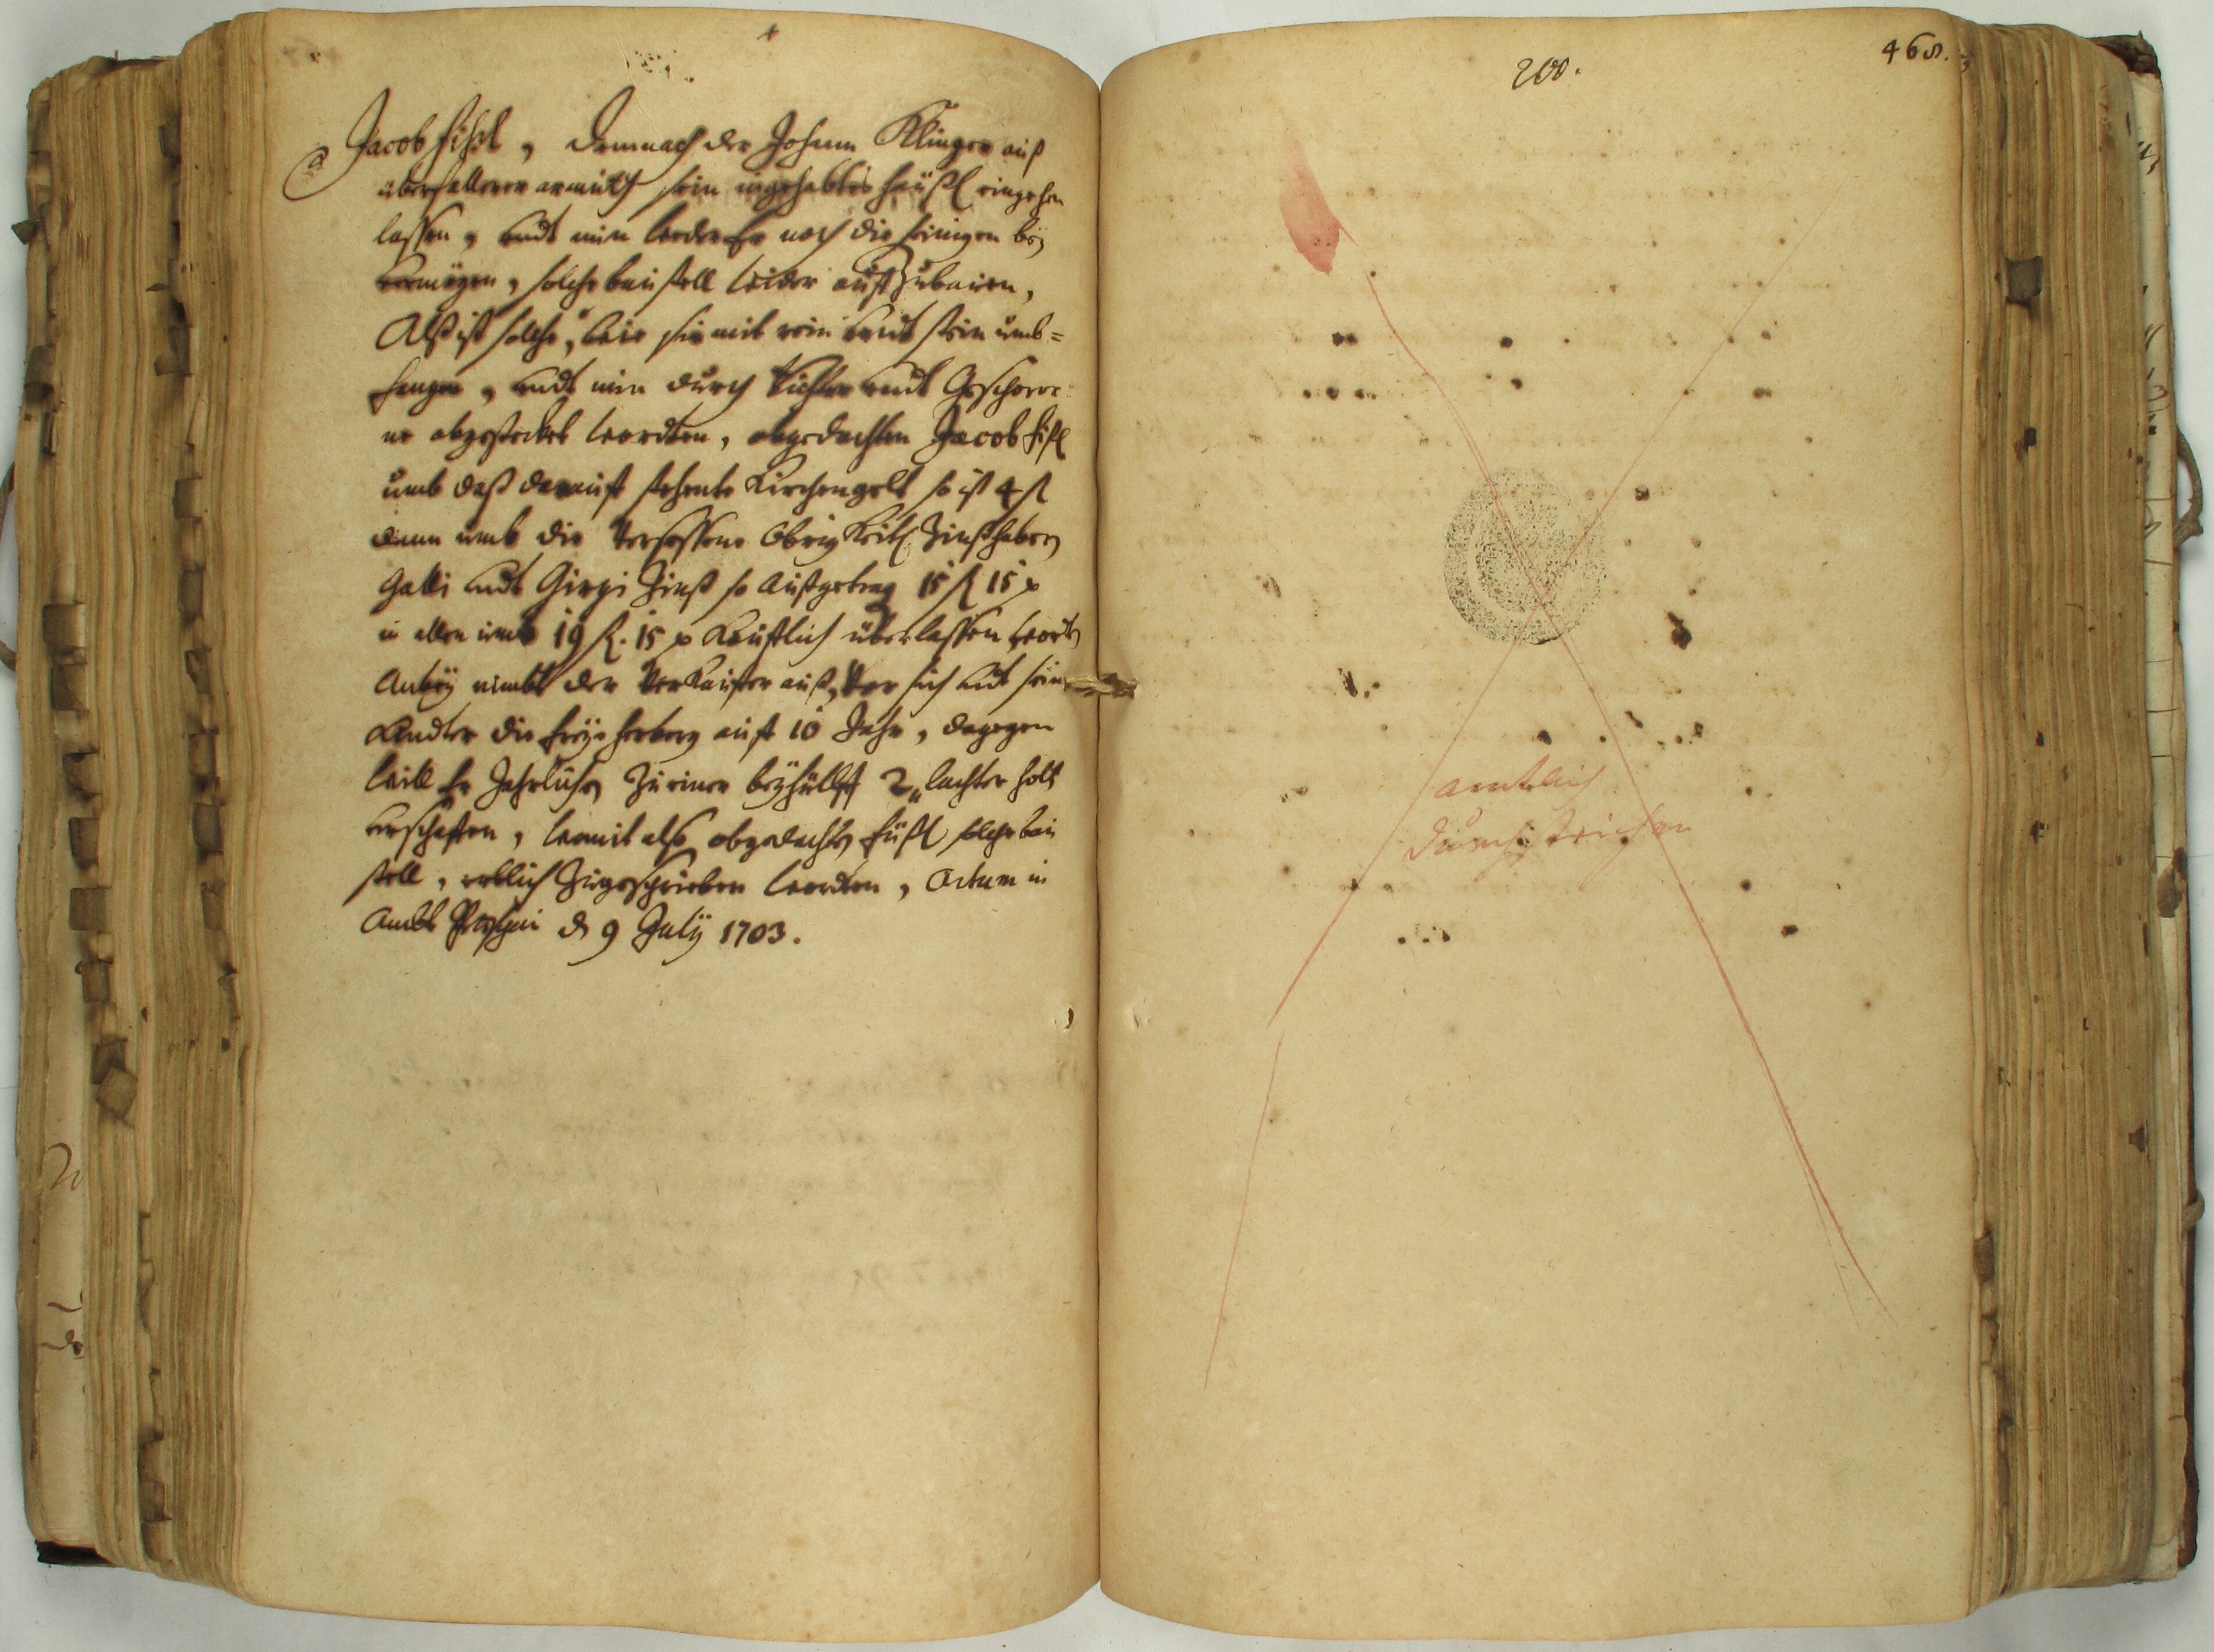 Jacob Fißl, demnach der Johann Klinger auß
überfallener armuth sein ingehabtes Häußl eingehen
lassen, undt nun weder Er noch die seinigen bey
vermögen, solche baustell wider auffzubauen,
Alß ist solche, wie sie mit rein undt stein umb=
fangen, undt nun durch Richter undt Geschwor
ne abgestecket wordten, obgedachten Jacob Fißl
umb daß darauff stehente Kirchengelt so ist 4 fl
dann umb die Versessene Obrigkeitl Zinßhaber
Galli undt Girgi Zinß so Außgetrag 15 fl 15 x
in allen umb 19 fl. 15 x Kaufflich überlassen wordn
Anbey nimbt der Verkauffer auß, Vor sich undt sein
Kindter die freye herberg auff 10 Jahr, dagegen
will Er Jahrlichen zu einer beyhülff 2 lachter holtz
verschaffen, womit also obgedachten Fißl solche bau
stell, erblich zugeschrieben worden, Actum in
Ambt den 9 July 1703.
200.
468.
amtlich
durchstrichen